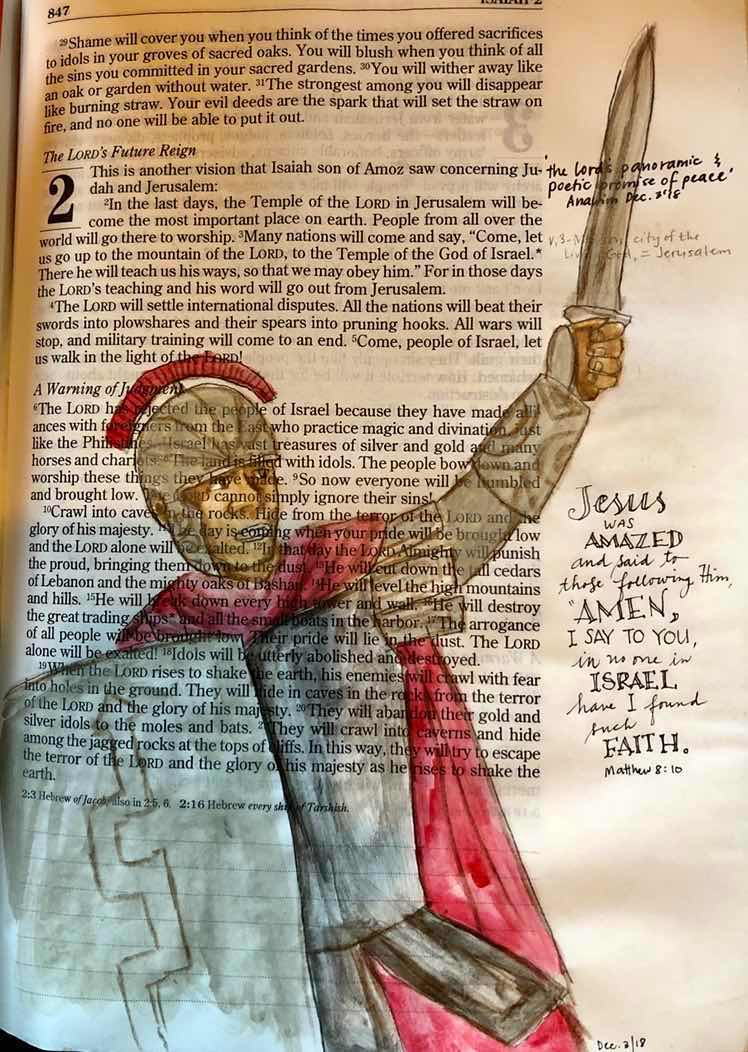 847
ISAIAH 2
29Shame will cover you when you think of the times you offered sacrifices
to idols in your groves of sacred oaks. You will blush when you think of all
the sins you committed in your sacred gardens. 30You will wither away like
an oak or garden without water. 31The strongest among you will disappear
like burning straw. Your evil deeds are the spark that will set the straw on
fire, and no one will be able to put it out.
The LORD's Future Reign
2 This is another vision that Isaiah son of Amoz saw concerning Ju-
dah and Jerusalem:
2In the last days, the Temple of the LORD in Jerusalem will be-
come the most important place on earth. People from all over the
world will go there to worship. 3Many nations will come and say, “Come, let
us go up to the mountain of the LORD, to the Temple of the God of Israel.*
There he will teach us his ways, so that we may obey him.” For in those days
the LORD's teaching and his word will go out from Jerusalem.
4The LORD will settle international disputes. All the nations will beat their
swords into plowshares and their spears into pruning hooks. All wars will
stop, and military training will come to an end. 5Come, people of Israel, let
us walk in the light of the LORD!
A Warning of Judgment
6The LORD has rejected the people of Israel because they have made alli-
ances with foreigners from the East who practice magic and divination, just
like the Philistines. 7Israel has vast treasures of silver and gold and many
horses and chariots. 8The land is filled with idols. The people bow down and
worship these things they have made. 9So now everyone will be humbled
and brought low. The LORD cannot simply ignore their sins!
10Crawl into caves in the rocks. Hide from the terror of the LORD and the
glory of his majesty. 11The day is coming when your pride will be brought low
and the LORD alone will be exalted. 12In that day the LORD Almighty will punish
the proud, bringing them down to the dust. 13He will cut down the tall cedars
of Lebanon and the mighty oaks of Bashan. 14He will level the high mountains
and hills. 15He will break down every high tower and wall. 16He will destroy
the great trading ships* and all the small boats in the harbor. 17The arrogance
of all people will be brought low. Their pride will lie in the dust. The LORD
alone will be exalted! 18Idols will be utterly abolished and destroyed.
19When the LORD rises to shake the earth, his enemies will crawl with fear
into holes in the ground. They will hide in caves in the rocks from the terror
of the LORD and the glory of his majesty. 20They will abandon their gold and
silver idols to the moles and bats. 21They will crawl into caverns and hide
among the jagged rocks at the tops of cliffs. In this way, they will try to escape
the terror of the LORD and the glory of his majesty as he rises to shake the
earth.
2:3 Hebrew of Jacob; also in 2:5, 6. 2:16 Hebrew every ship of Tarshish.
'the Lord's panoramic &
poetic promise of peace'
Dec. 3'18
v.3- city of the
God, = Jerusalem
Jesus
WAS
AMAZED
and said to
those following Him,
"AMEN,
I SAY TO YOU,
in no one in
ISRAEL
have I found
such
FAITH.
Matthew 8:10
Dec. 3/18